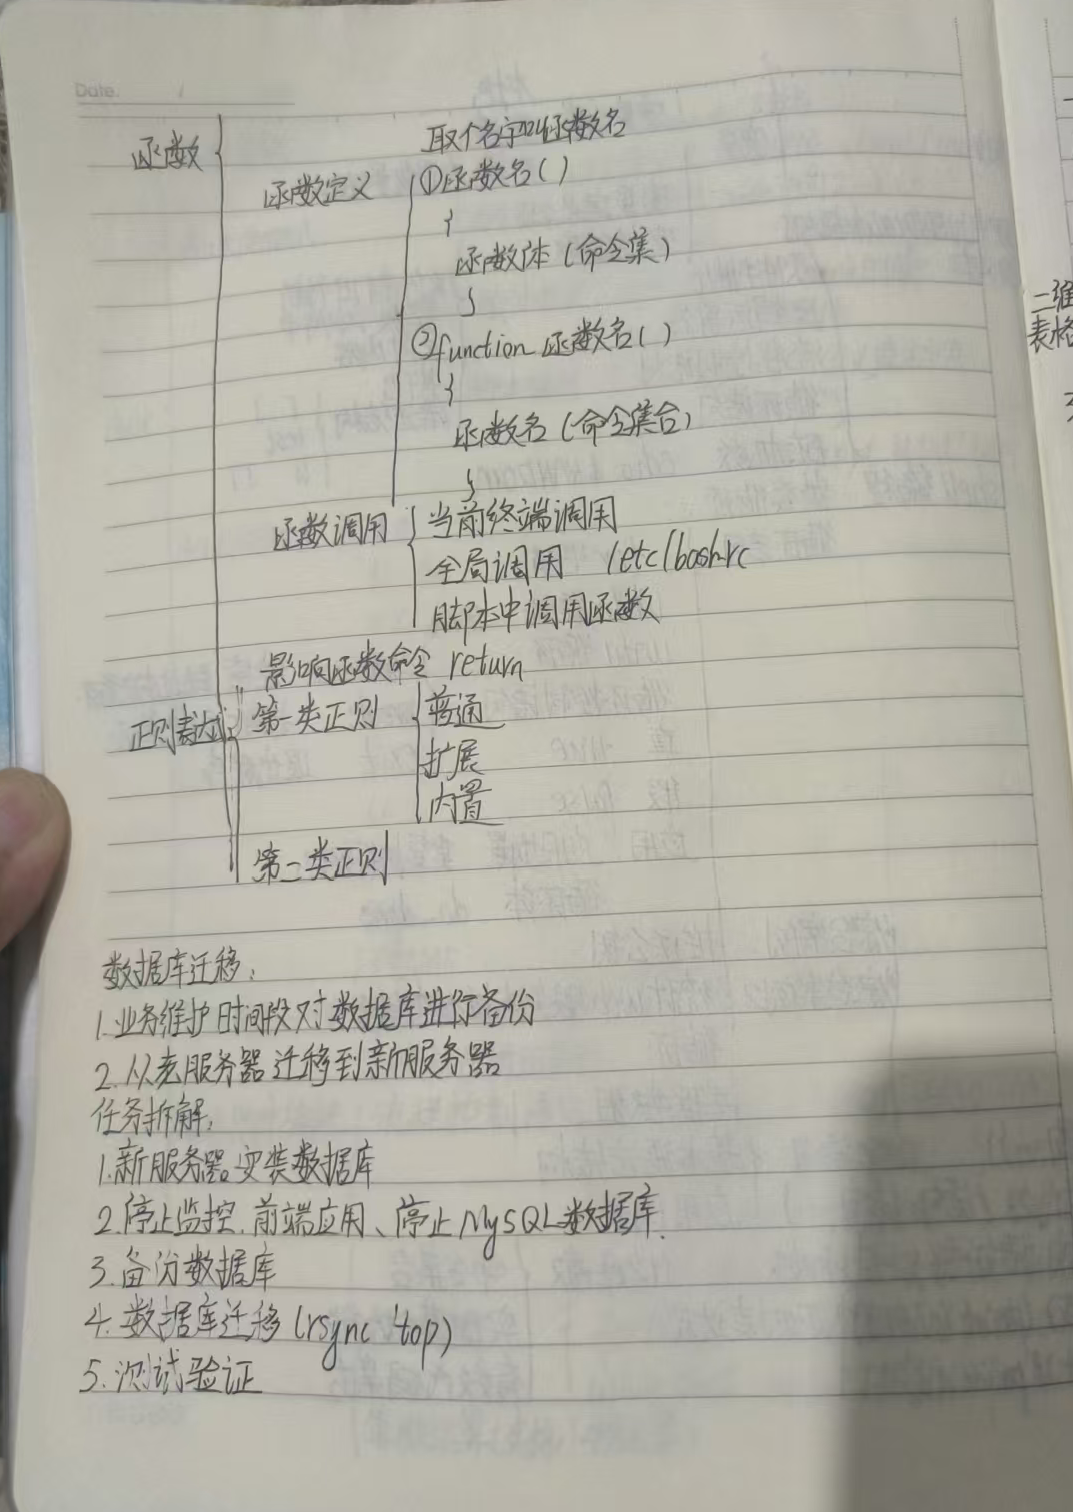 Date.
取个名字叫函数名
函数
函数定义 ①函数名()
{
函数体(命令集)
}
②function 函数名()
{
函数名(命令集合)
}
函数调用 当前终端调用
全局调用 /etc/bashrc
脚本中调用函数
影响函数命令 return
正则表达式 第一类正则 普通
扩展
内置
第二类正则
数据库迁移:
1.业务维护时间段对数据库进行备份
2.从老服务器迁移到新服务器
任务拆解:
1.新服务器安装数据库
2.停止监控、前端应用、停止MySQL数据库.
3.备份数据库
4.数据库迁移(rsync top)
5.测试验证
二维
表格